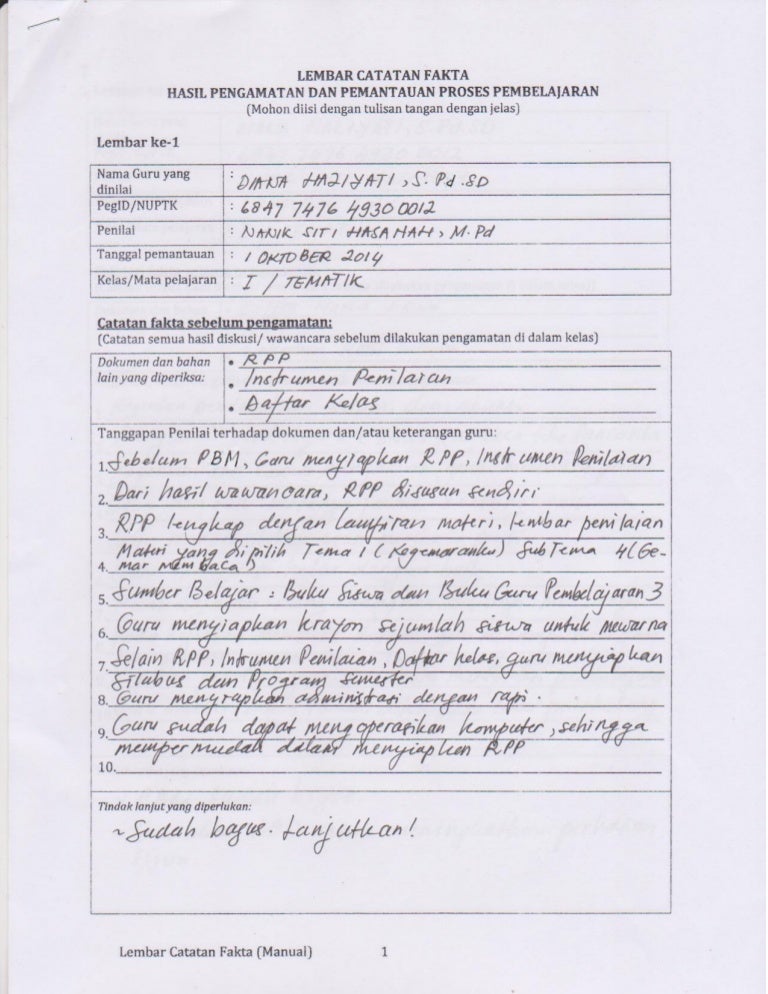 LEMBAR CATATAN FAKTA
HASIL PENGAMATAN DAN PEMANTAUAN PROSES PEMBELAJARAN
(Mohon diisi dengan tulisan tangan dengan jelas)
Lembar ke-1
Nama Guru yang dinilai : DIANA HAZIYATI, S.Pd.SD
PegID/NUPTK : 6847 7476 4930 0012
Penilai : NANIK SITI HASANAH, M.Pd
Tanggal pemantauan : 1 OKTOBER 2014
Kelas/Mata pelajaran : I / TEMATIK
Catatan fakta sebelum pengamatan:
(Catatan semua hasil diskusi/ wawancara sebelum dilakukan pengamatan di dalam kelas)
Dokumen dan bahan • RPP
lain yang diperiksa: • Instrumen Penilaian
• Daftar Kelas
Tanggapan Penilai terhadap dokumen dan/atau keterangan guru:
1. Sebelum PBM, Guru menyiapkan RPP, Instrumen Penilaian
2. Dari hasil wawancara, RPP disusun sendiri
3. RPP lengkap dengan lampiran materi, lembar penilaian
Materi yang dipilih Tema 1 (Kegemaranku) SubTema 4 (Ge-
4. mar membaca)
5. Sumber Belajar : Buku Siswa dan Buku Guru Pembelajaran 3
6. Guru menyiapkan krayon sejumlah siswa untuk mewarna
7. Selain RPP, Intrumen Penilaian, Daftar kelas, guru menyiapkan
Silabus dan Program Semester
8. Guru menyiapkan administrasi dengan rapi.
9. Guru sudah dapat mengoperasikan komputer, sehingga
mempermudah dalam menyiapkan RPP
10.
Tindak lanjut yang diperlukan:
~ Sudah bagus. Lanjutkan!
Lembar Catatan Fakta (Manual) 1